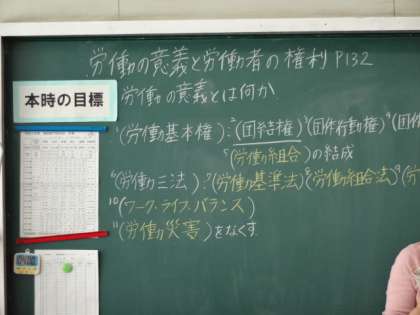 労働の意義と労働者の権利 P132
本時の目標
労働の意義とは何か.
1(労働基本権):2(団結権)3(団体行動権)4(団体
5(労働組合)の結成
6(労働三法):7(労働基準法)8(労働組合法)9(労
10(ワーク・ライフ・バランス)
11(労働災害)をなくす.